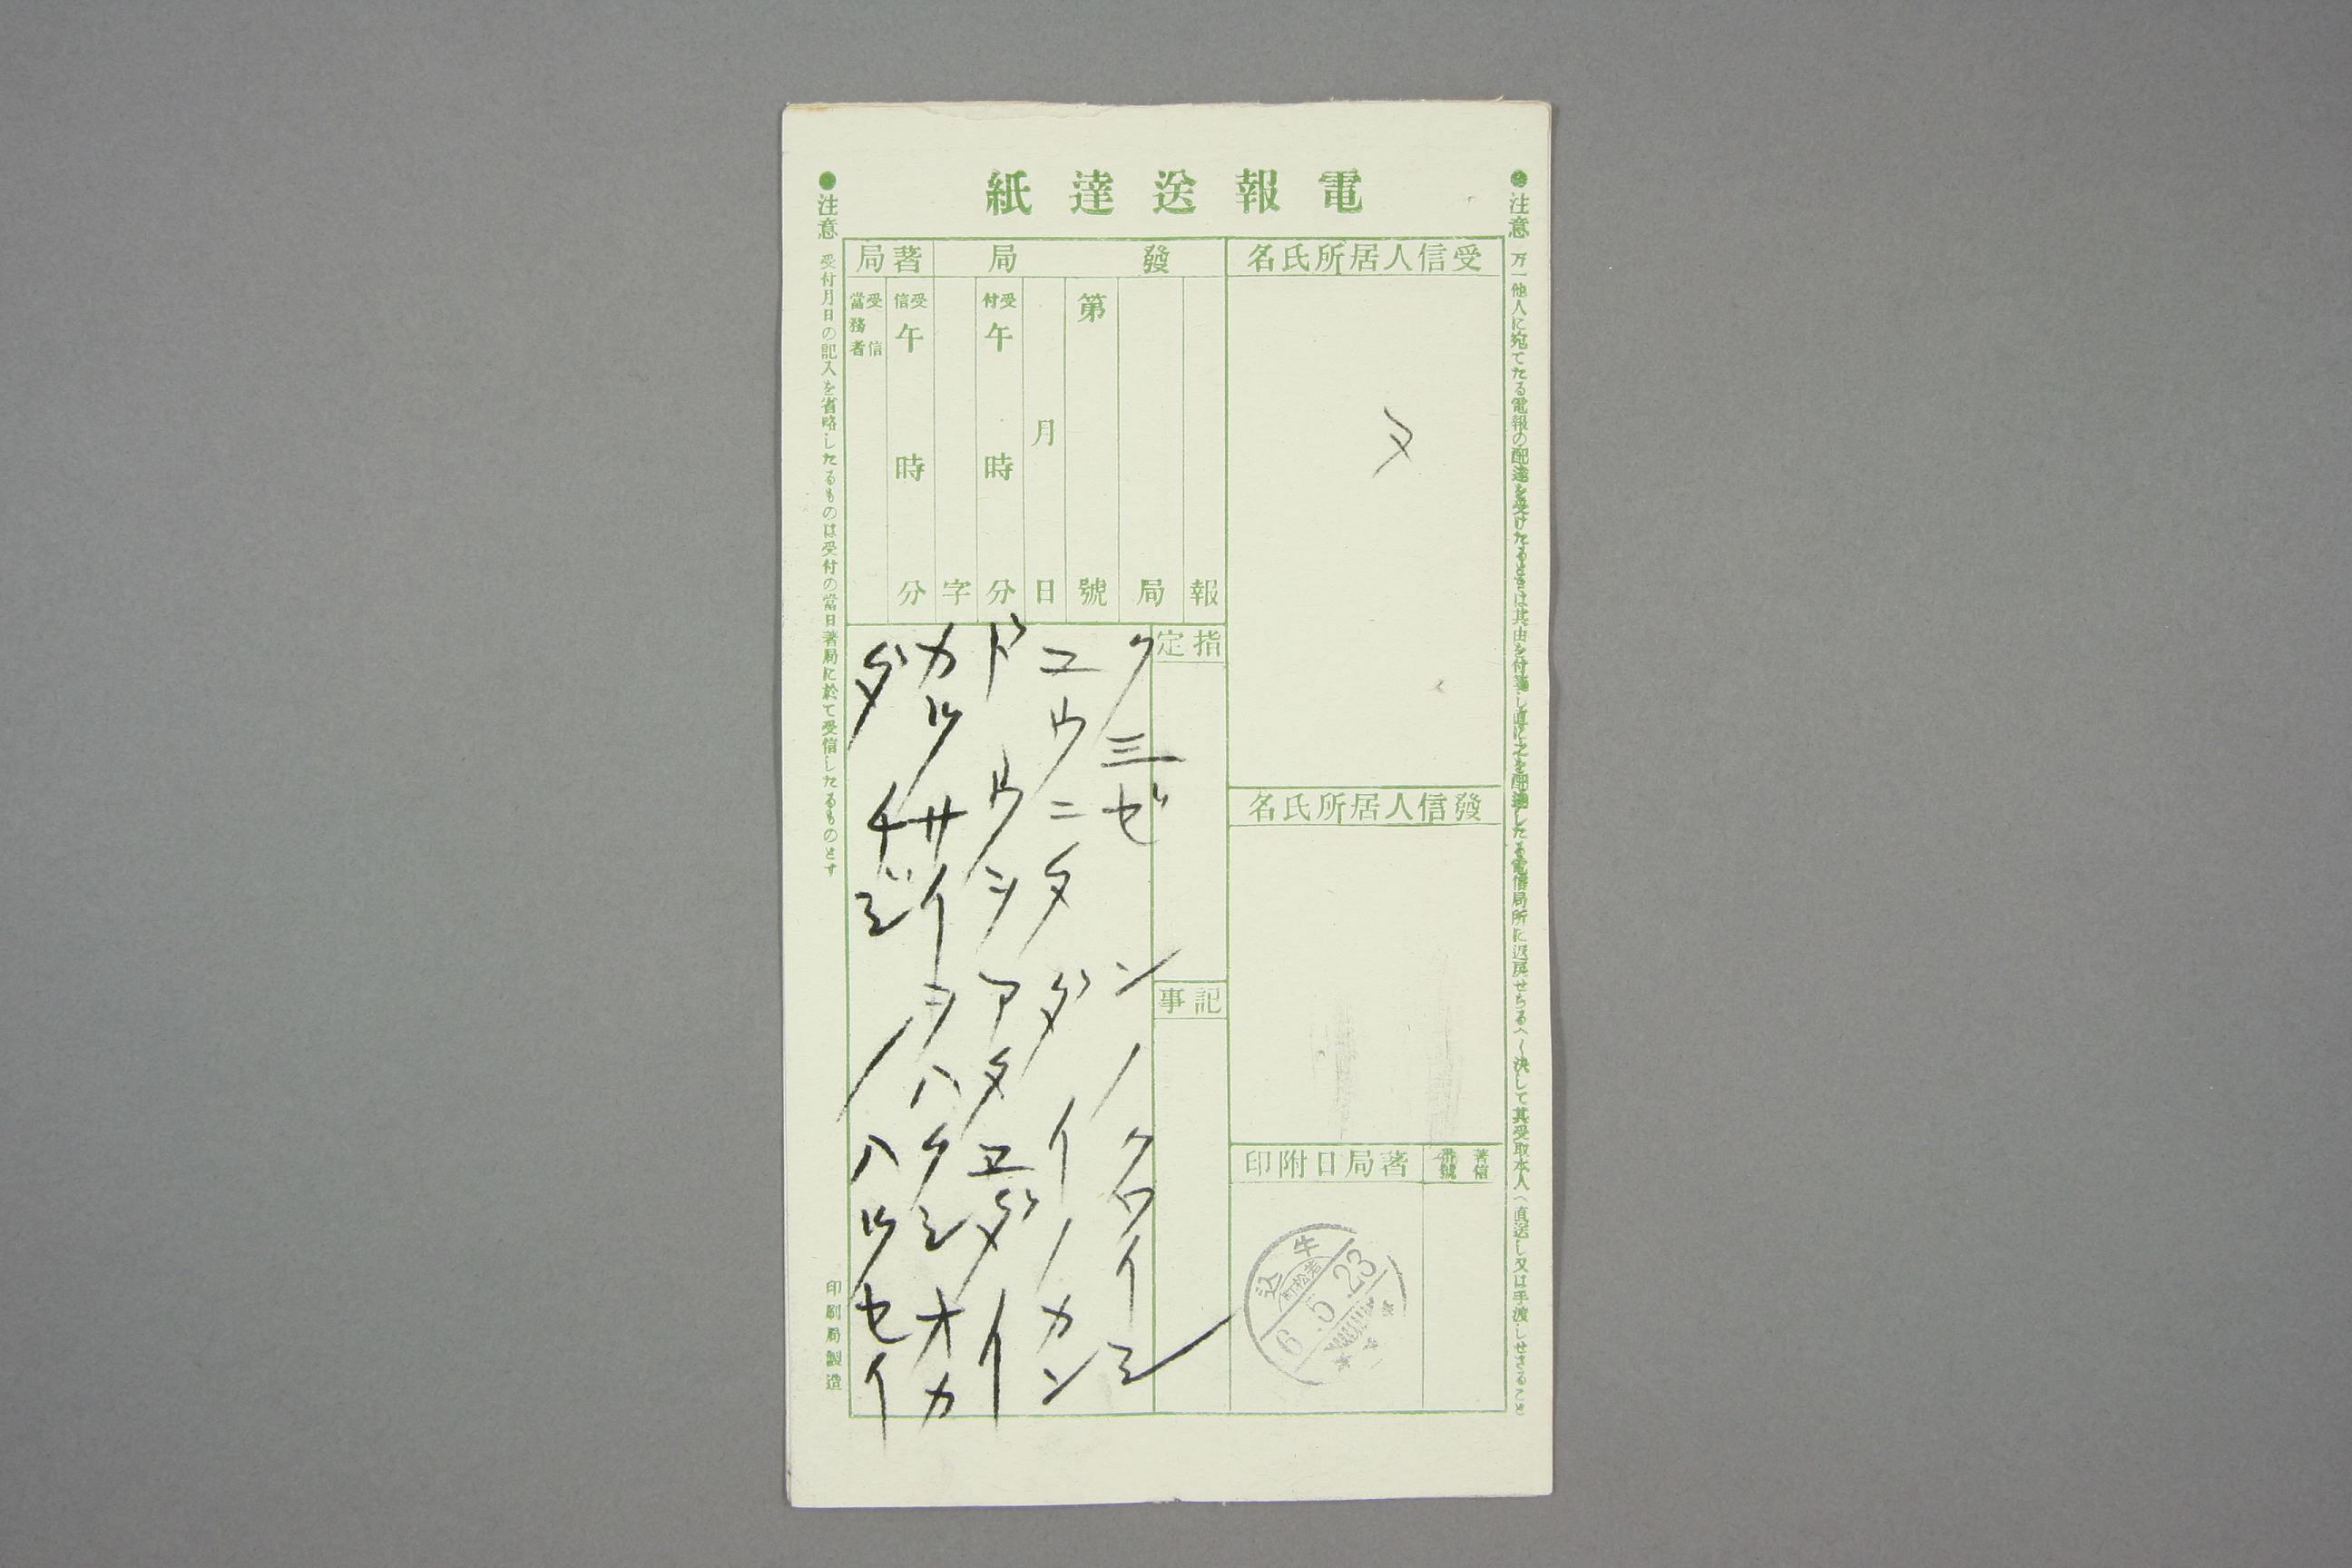 電報送達紙
●注意 万一他人に宛てたる電報の配達を受けたるときは其由を付箋し直に之を配達したる電信局所に返戻せらるへし決して其受取本人へ直送し又は手渡しせさること
受信人居所氏名
メ
發信人居所氏名
著信番號
著局日附印
牛込
若松町
6.5.23
發局
報
局
第號
月日
受付午時分
字
著局
受信午時分
受信當務者
指定
記事
クミゼンノクロイシ
ユウニタダイノカン
ドウヲアタヱダイ
カツサイヲハクシオカ
ダチジノハツセイ
●注意 受付月日の記入を省略したるものは受付の當日著局に於て受信したるものとす
印刷局製造